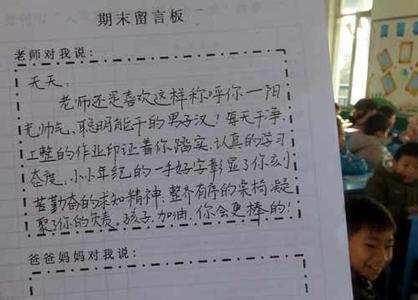 期末留言板
老师对我说：
天天：
老师还是喜欢这样称呼你—阳
光帅气、聪明能干的男子汉！每天干净、
工整的作业印证着你踏实、认真的学习
态度，小小年纪的一手好字彰显了你刻
苦勤奋的求知精神，整齐有序的桌椅凝
聚了你的负责。孩子，加油，你会更棒的！
爸爸妈妈对我说：